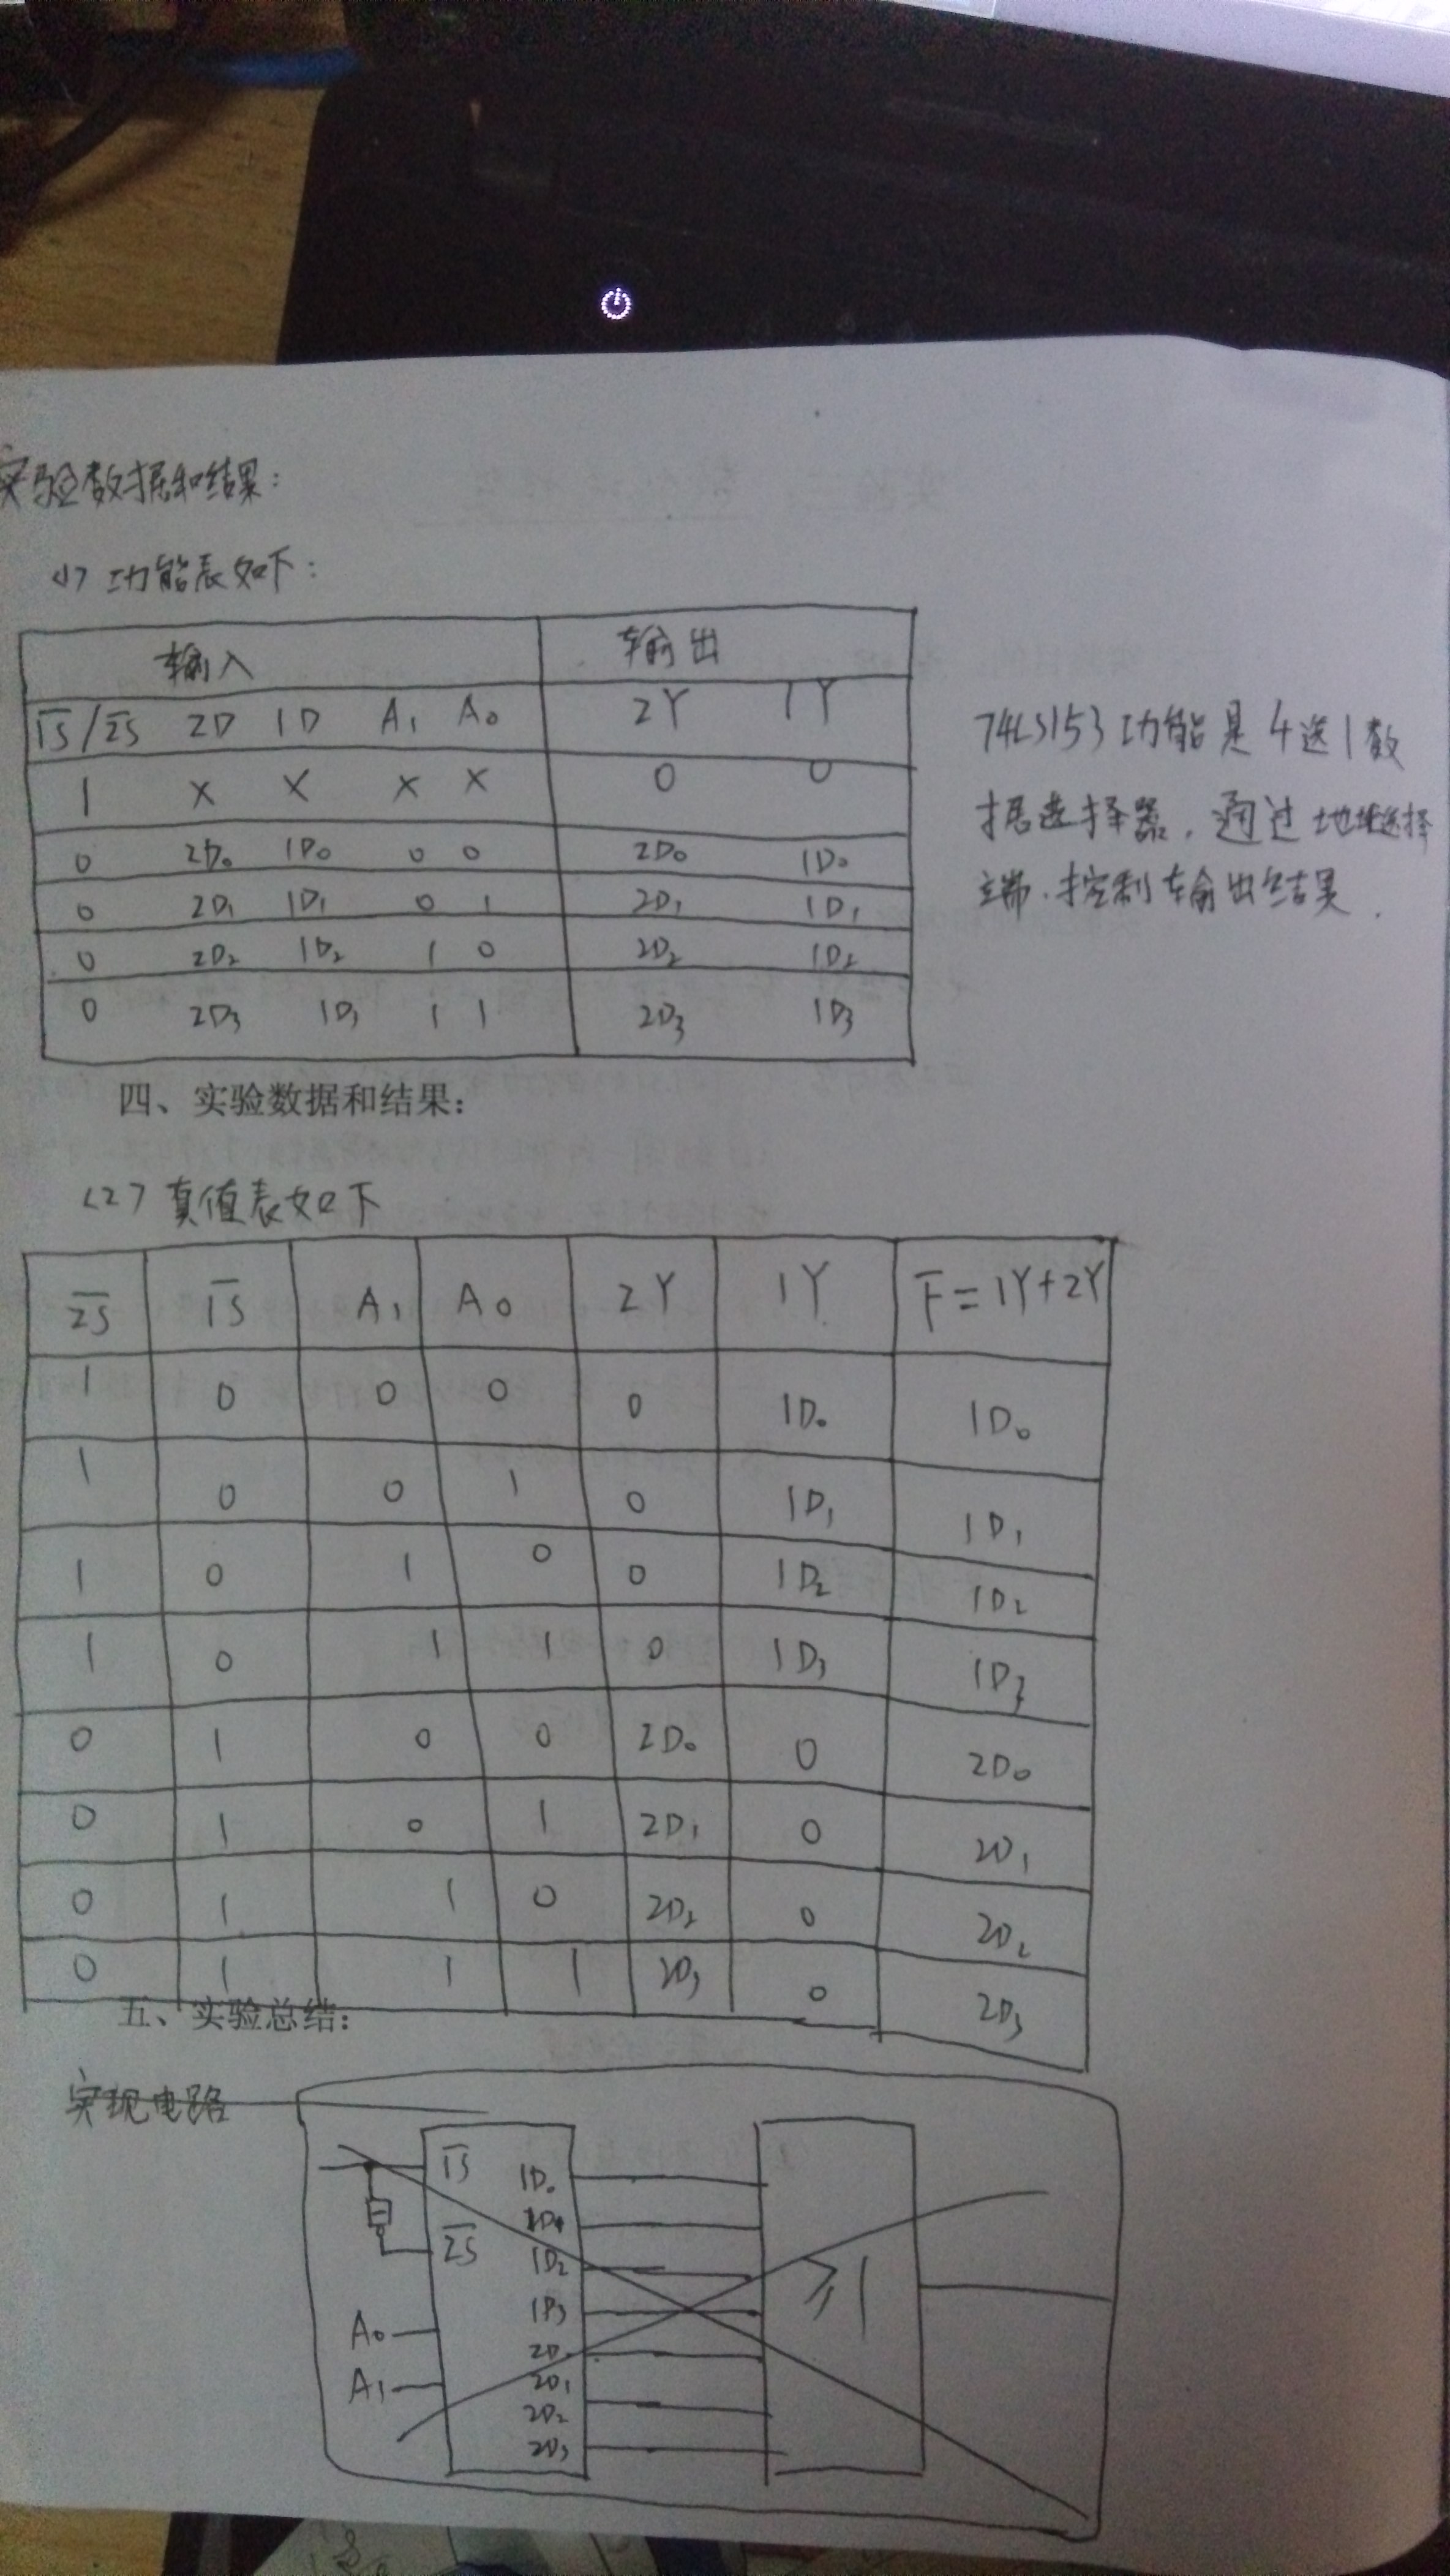 实验数据和结果:
<1> 功能表如下:
输入 输出
1S̅/2S̅ 2D 1D A₁ A₀ 2Y 1Y
1 × × × × 0 0
0 2D₀ 1D₀ 0 0 2D₀ 1D₀
0 2D₁ 1D₁ 0 1 2D₁ 1D₁
0 2D₂ 1D₂ 1 0 2D₂ 1D₂
0 2D₃ 1D₃ 1 1 2D₃ 1D₃
74LS153功能是4选1数
据选择器,通过地址选择
端.控制输出结果.
四、实验数据和结果:
<2> 真值表如下
2S̅ 1S̅ A₁ A₀ 2Y 1Y F=1Y+2Y
1 0 0 0 0 1D₀ 1D₀
1 0 0 1 0 1D₁ 1D₁
1 0 1 0 0 1D₂ 1D₂
1 0 1 1 0 1D₃ 1D₃
0 1 0 0 2D₀ 0 2D₀
0 1 0 1 2D₁ 0 2D₁
0 1 1 0 2D₂ 0 2D₂
0 1 1 1 2D₃ 0 2D₃
五、实验总结:
实现电路
1S̅ 1D₀
2S̅ 1D₂
1D₃
A₀ 2D
A₁ 2D₁
2D₂
2D₃
≥1